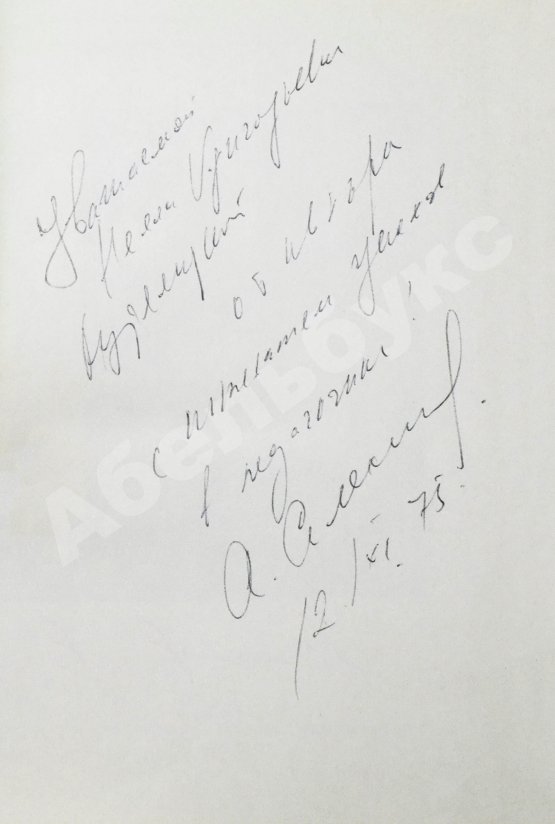 Уважаемой
Нелли Григорьевне
от автора
с пожеланием успехов
в педагогике!
А.
12/XI.75.
Абельбукс